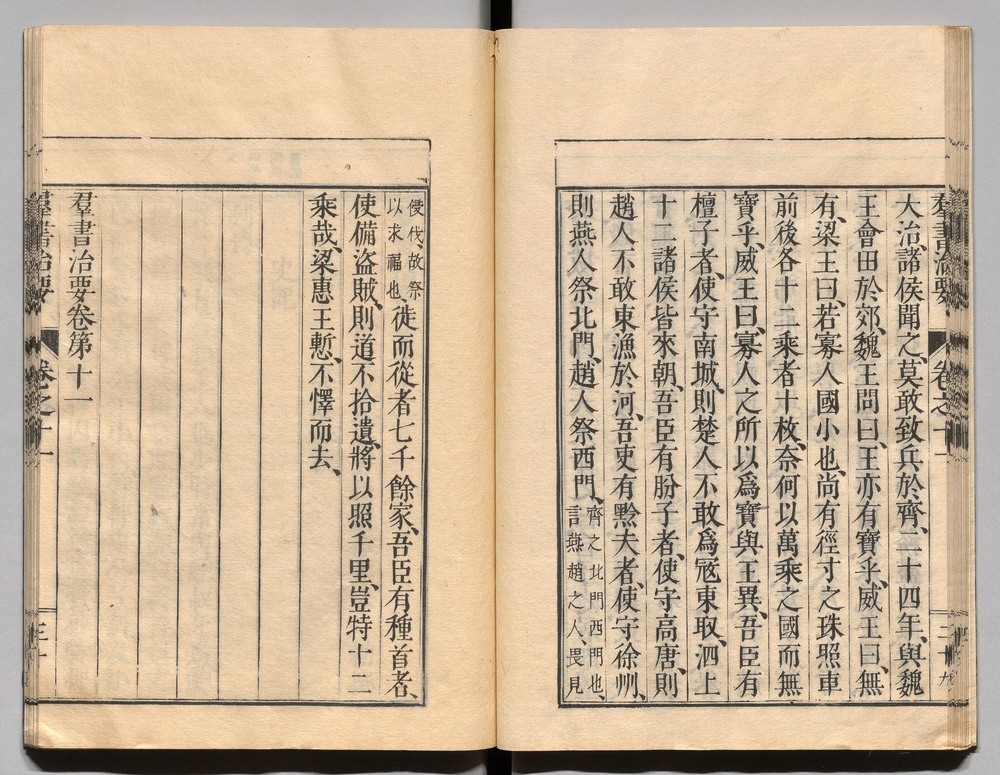 羣書治要 卷之十一 二十九
大治、諸侯聞之、莫敢致兵於齊、二十四年、與魏
王會田於郊、魏王問曰、王亦有寶乎、威王曰、無
有、梁王曰、若寡人國小也、尚有徑寸之珠照車
前後各十二乘者十枚、奈何以萬乘之國而無
寶乎、威王曰、寡人之所以爲寶與王異、吾臣有
檀子者、使守南城、則楚人不敢爲寇東取、泗上
十二諸侯皆來朝、吾臣有肦子者、使守高唐、則
趙人不敢東漁於河、吾吏有黔夫者、使守徐州、
則燕人祭北門、趙人祭西門、齊之北門西門也、言燕趙之人、畏見
侵伐、故祭以求福也、徙而從者七千餘家、吾臣有種首者、
使備盜賊、則道不拾遺、將以照千里、豈特十二
乘哉、梁惠王慙、不懌而去、
羣書治要卷第十一
羣書治要 卷之十一 三十